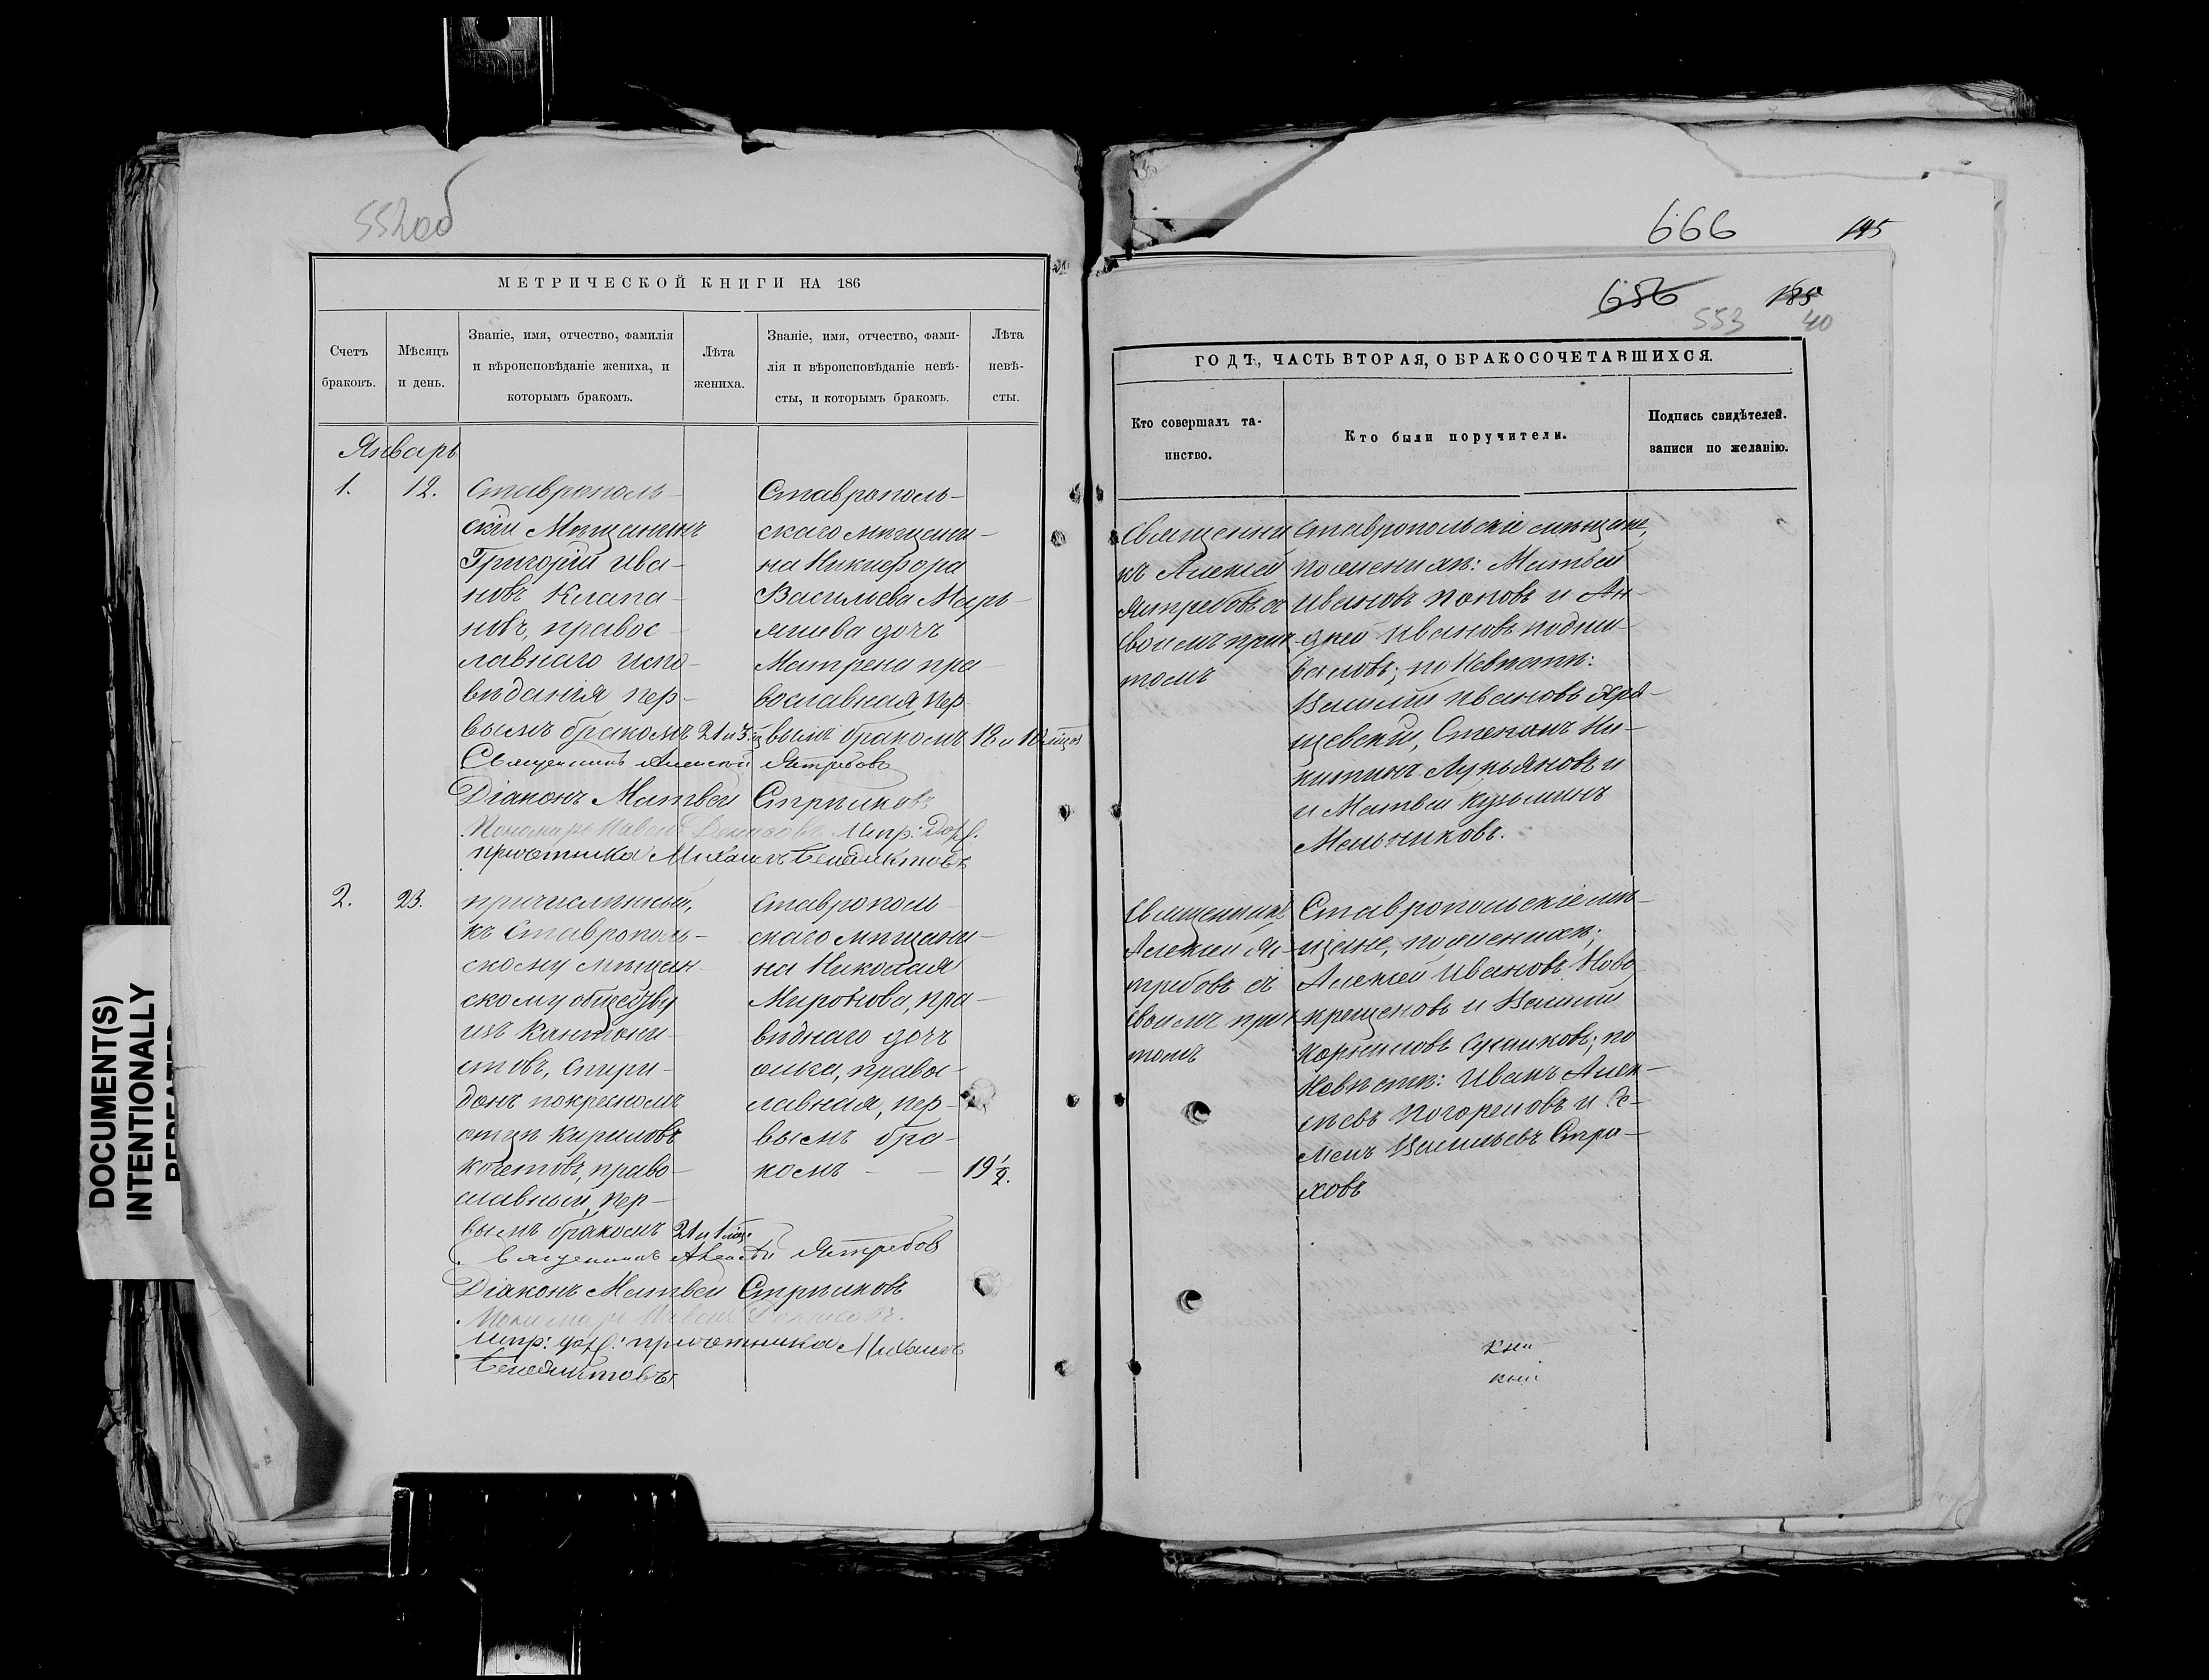 552об
МЕТРИЧЕСКОЙ КНИГИ НА 186
Счетъ
браковъ.
Мѣсяцъ
и день.
Званіе, имя, отчество, фамилія
и вѣроисповѣданіе жениха, и
которымъ бракомъ.
Лѣта
жениха.
Званіе, имя, отчество, фами-
лія и вѣроисповѣданіе невѣ-
сты, и которымъ бракомъ.
Лѣта
невѣ-
сты.
Январь
1.
12.
Ставрополь-
скій Мѣщанинъ
Григорій Ива-
новъ
новъ, правос-
лавнаго испо-
вѣданія пер-
вымъ бракомъ
21 и 3
Ставрополь-
скаго мѣщани-
на Никифора
Васильева Марь-
дочь
Матрена пра-
вославная, пер
вымъ бракомъ
18 и 10
Священникъ Алексій Ястребовъ
Діаконъ Матвей Стрѣлковъ
Пономарь Павелъ Денисовъ. Испр: Долж.
причетника Михаилъ Бенедиктовъ
2.
23.
причисленный,
къ Ставрополь-
скому мѣщан-
скому обществу
изъ Кантони-
стовъ, Спири-
донъ по кресному
отцу Кириловъ
Кочетовъ, право-
славный, пер-
вымъ бракомъ
21 и 1 мѣс.
Ставрополь-
скаго мѣщани-
на Николая
Миронова, пра-
вѣднаго дочь
Ольга, правос-
лавная, пер-
вымъ бра-
комъ - -
19 1/2.
Священникъ Алексѣй Ястребов
Діаконъ Матвей Стрѣлковъ
Пономарь Павелъ Денисовъ.
Испр: долж: причетника Михаилъ
Бенедиктовъ
666
195
656
185
553
40
ГОДЪ, ЧАСТЬ ВТОРАЯ, О БРАКОСОЧЕТАВШИХСЯ.
Кто совершалъ та-
инство.
Кто были поручители.
Подпись свидѣтелей.
записи по желанію.
Священни
къ Алексій
Ястребовъ съ
своимъ прич-
томъ
Ставропольскіе мѣщане,
по женихѣ: Матвей
Ивановъ Поповъ и Ан-
дрей Ивановъ Подши-
валовъ; по Невѣстѣ:
Василій Ивановъ Хря-
щевскій, Степанъ Ни-
китинъ Лукьяновъ и
и Матвей Кузьминъ
Мельниковъ.
Священникъ
Алексій Яс-
требовъ съ
своимъ прич-
томъ
Ставропольскіе мѣ-
щане, по женихѣ;
Алексѣй Ивановъ Ново
крещеновъ и Василій
Корниловъ; по
Невѣстѣ: Иванъ Алек-
сѣевъ Погореловъ и Се-
менъ Васильевъ Стра-
ховъ
DOCUMENT(S)
INTENTIONALLY